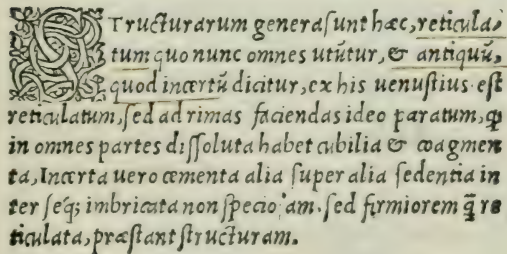 STructurarum genera ſunt hæc, reticula,
tum quo nunc omnes utūtur, & antiquū,
quod incertū dicitur, ex his uenuſtius eſt
reticulatum, ſed ad rimas faciendas ideo paratum, ꝙ
in omnes partes diſſoluta habet cubilia & coagmen
ta, Incerta uero cementa alia ſuper alia ſedentia in
ter ſeq́; imbricata non ſpecio am. ſed firmiorem q̄̃ re
ticulata, præſtant ſtructuram.